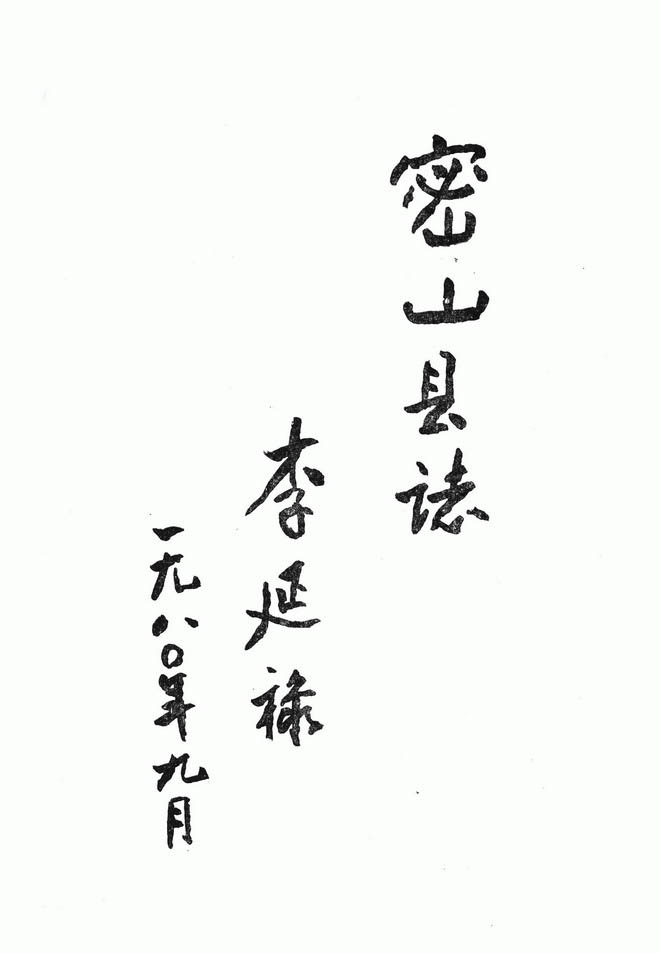 密山县誌
李延禄
一九八〇年九月